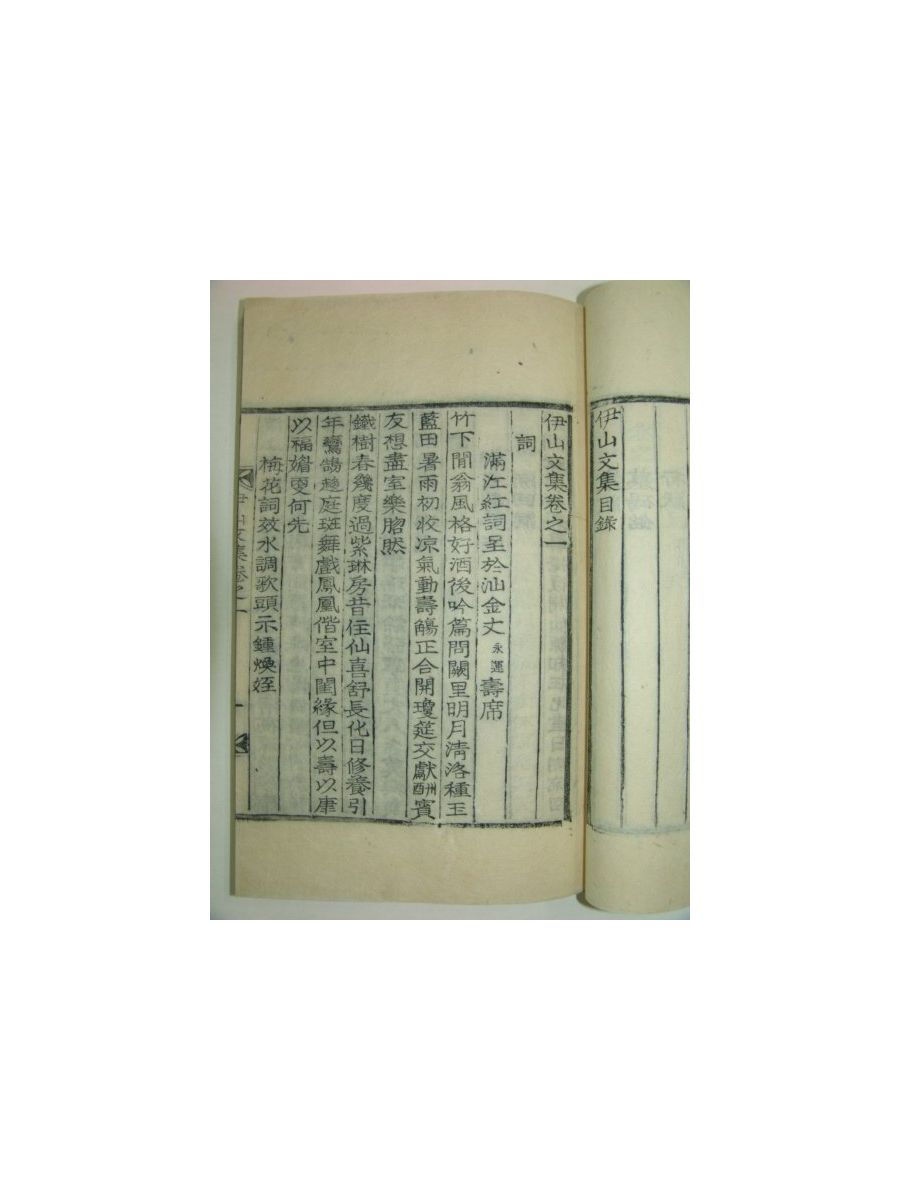 伊山文集目錄
伊山文集卷之一
詞
滿江紅詞呈於汕金丈永運壽席
竹下閒翁風格好酒後吟篇問闕里明月淸洛種玉
藍田暑雨初收凉氣動壽觴正合開瓊筵交獻酬賓
友想盡室樂䐇然
鐵樹春幾度過紫琳房昔住仙喜舒長化日修養引
年鸞鵠趍庭斑舞戱鳳凰偕室中閨緣但以壽以康
以福嬗更何先
梅花詞效水調歌頭示鍾煥姪
伊山文集卷之一